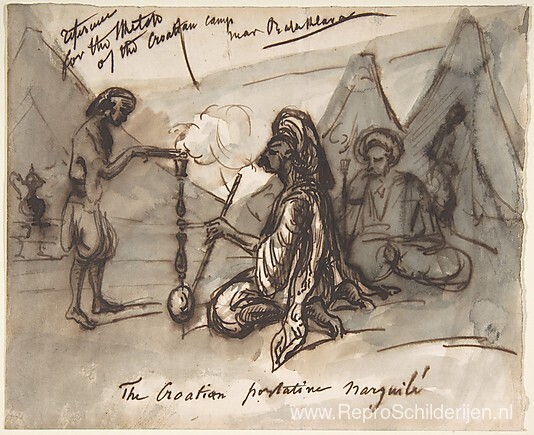 for the Sketch
of the Croatian Camp
near Balaklava
The Croatian portative Narguilé
www.ReproSchilderijen.nl